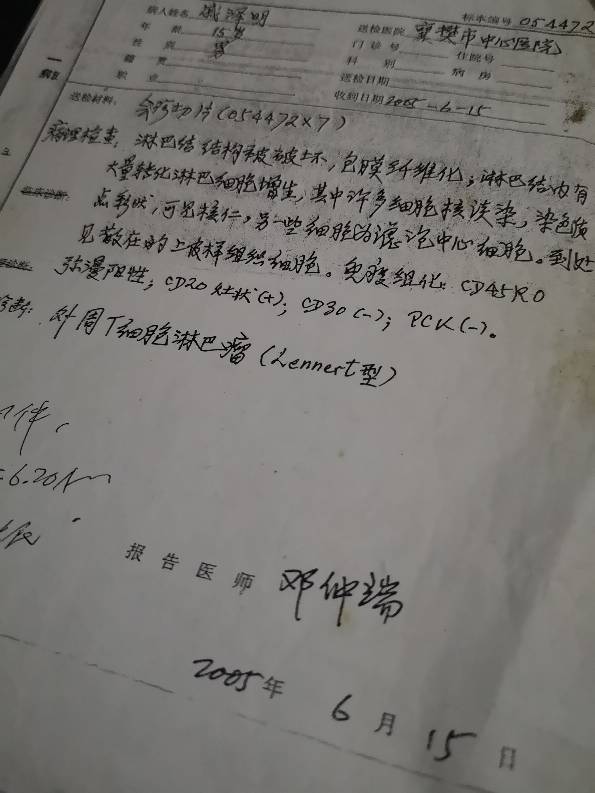 标本编号 054472
病人姓名 臧泽明 送检医院 襄樊市中心医院
年龄 15岁 门诊号 住院号
性别 男 科别 病房
籍贯 送检日期
职业 收到日期 2005-6-15
送检材料: 会诊切片(054472×7)
病理检查: 淋巴结结构被破坏,包膜纤维化;淋巴结内有
大量转化淋巴细胞增生,其中许多细胞核淡染,染色质
点彩状,可见核仁,另一些细胞为滤泡中心细胞。到处
临床诊断:
见散在的上皮样组织细胞。免疫组化:CD45RO
弥漫阳性;CD20灶状(+);CD30(-);PCK(-)。
诊断: 外周T细胞淋巴瘤(Lennert型)
6.20
报告医师 邓仲端
2005年 6月 15日